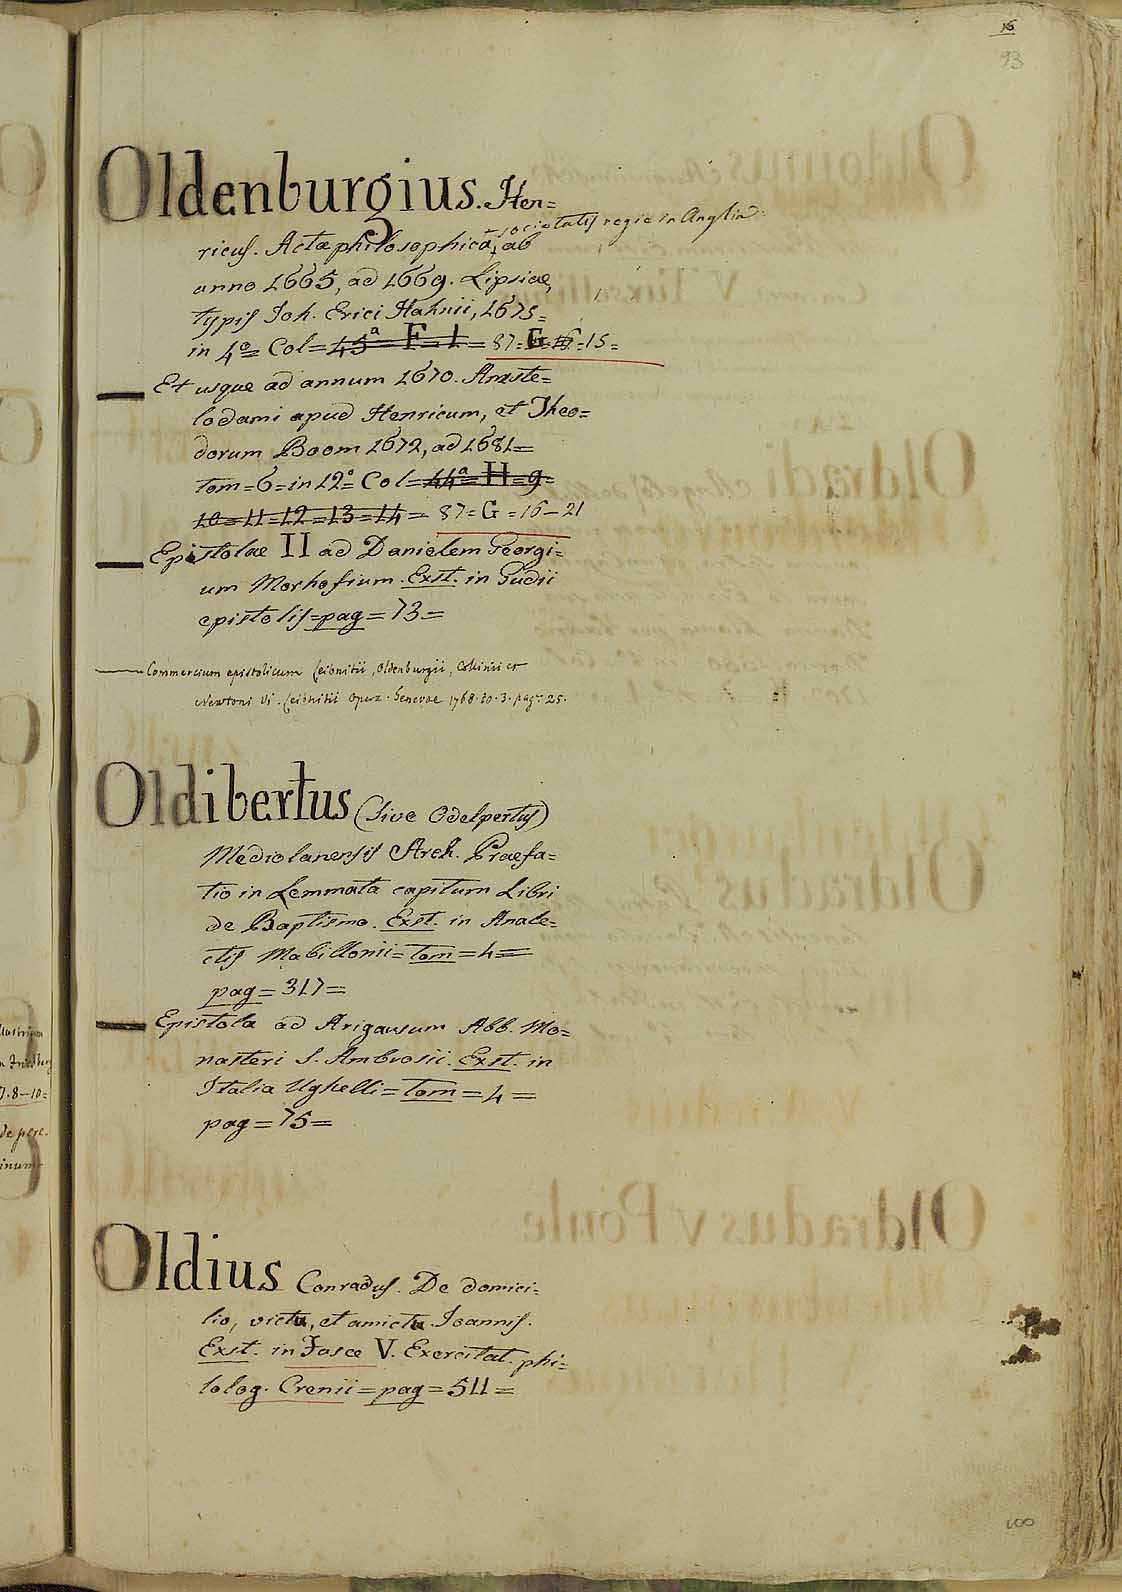 16
93
Oldenburgius. Hen=
societatis regiæ in Anglia.
ricus. Acta philosophica, ab
anno 1665, ad 1669. Lipsiae,
typis Joh. Erici Hahnii, 1675=
in 4º= Col= 45ª F=1= 87=G=16=15=
Et usque ad annum 1670. Amste=
lodami apud Henricum, et Theo=
dorum Boom 1672, ad 1681=
tom=6=in 12º Col=44ª=H=9=
10=11=12=13=14= 87=G=16-21
Epistolae II ad Danielem Georgi=
um Morhofium. Exst. in Gudii
epistolis=pag=73=
Commercium epistolicum Leibnitii, Oldenburgii, Collinii et
Newtoni Vi. Leibnitii Opera. Genevae 1768. to. 3. pag. 25.
Oldibertus (sive Odelpertus)
Mediolanensis Arch. Praefa=
tio in Lemmata capitum Libri
de Baptismo. Exst. in Anale=
ctis Mabillonii=tom=4=
pag=317=
Epistola ad Arigausum Abb. Mo=
nasteri S. Ambrosii. Exst. in
Italia Ughelli=tom=4=
pag=75=
Oldius Conradus. De domici=
lio, victu, et amictu Joannis.
Exst. in Fasce V. Exercitat. phi=
lolog. Crenii=pag=511=
100